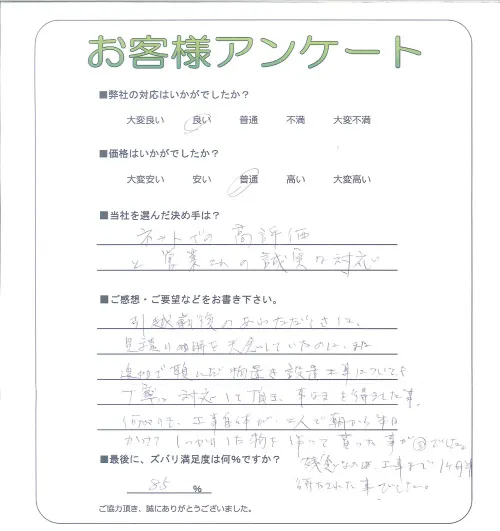 お客様アンケート
■弊社の対応はいかがでしたか?
大変良い 良い 普通 不満 大変不満
■価格はいかがでしたか?
大変安い 安い 普通 高い 大変高い
■当社を選んだ決め手は?
ネットでの高評価
と営業さんの誠実な対応
■ご感想・ご要望などをお書き下さい。
引越前後のあわただしさに、
していたのに、また
追加で頼んだ物置き設置工事についても
丁寧に対応して頂き、事なきを得ました事、
何よりも、工事自体が、二人で朝から半日
かけてしっかりした物を作って貰った事が
■最後に、ズバリ満足度は何%ですか?
残念なのは、工事まで1ヶ月半
待たされた事でした。
85 %
ご協力頂き、誠にありがとうございました。